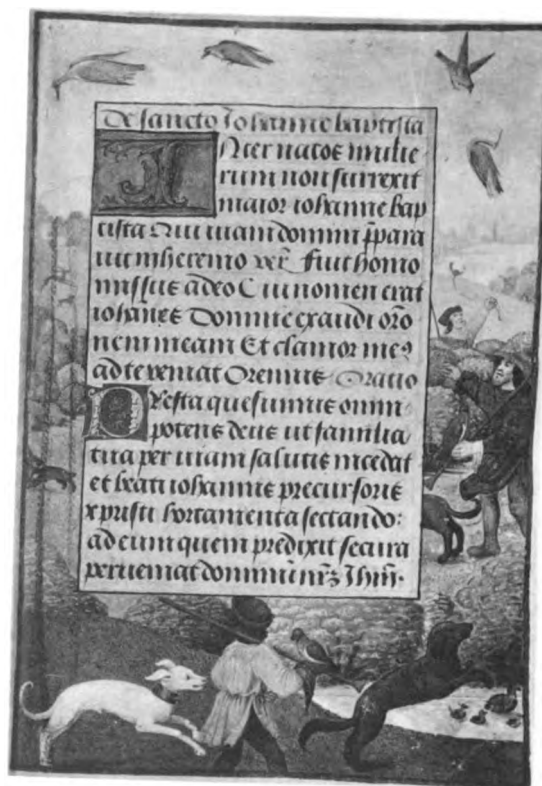 De sancto Iohanne baptista
Nter natos mulie
rum non surrexit
maior iohanne bap
tista Qui uiam domini p̄para
uit in heremo ver̄ Fuit homo
missus a deo Cui nomen erat
iohanes Domine exaudi or̄o
nem meam Et clamor meꝰ
ad te veniat Oremus Oratio
Presta quesumus omni
potens deus ut familia
tua per uiam salutis incedat
et beati iohannis precursoris
xpristi hortamenta sectando:
ad eum quem predixit secura
perueniat dominū nr̄ʒ Ihm̄.